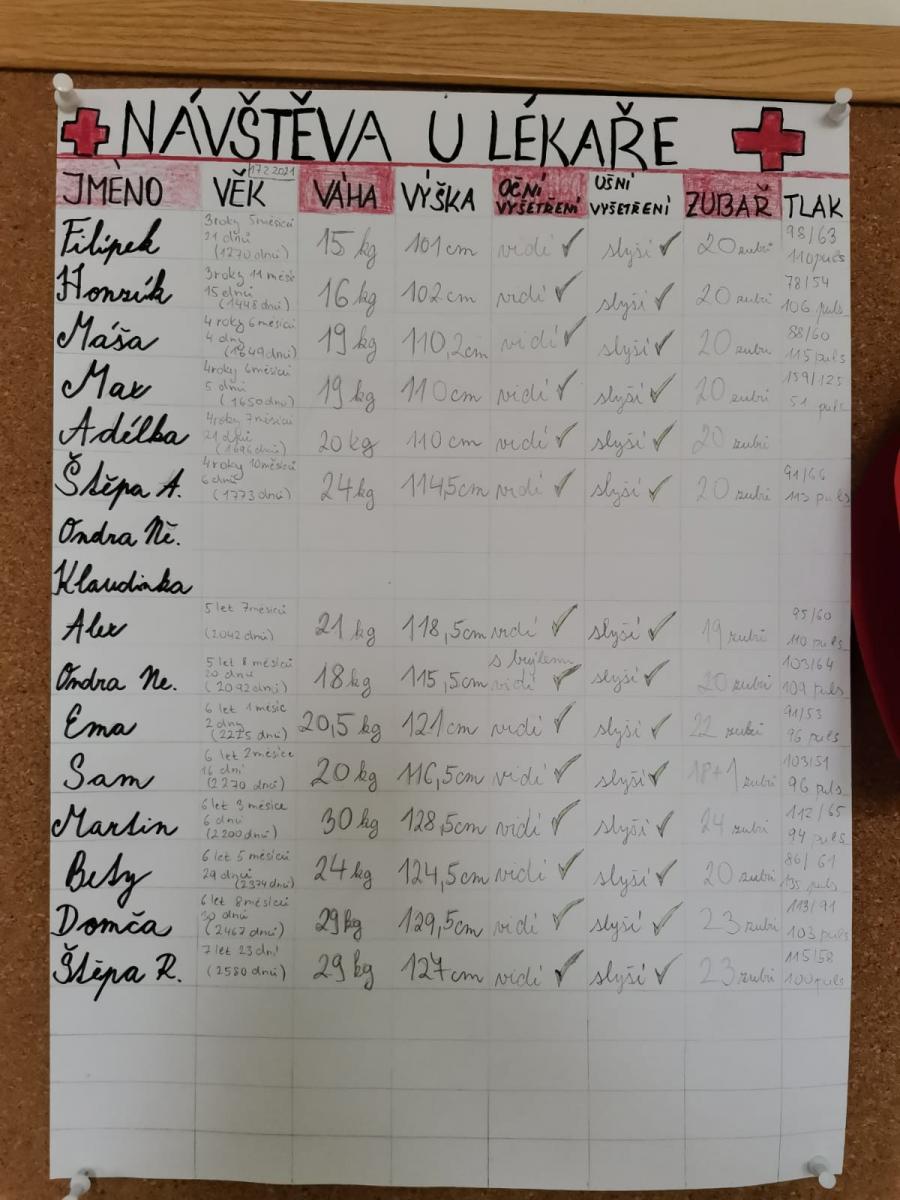 NÁVŠTĚVA U LÉKAŘE
JMÉNO VĚK 17.2.2021 VÁHA VÝŠKA OČNÍ VYŠETŘENÍ UŠNÍ VYŠETŘENÍ ZUBAŘ TLAK
Filípek 3 roky 5 měsíců 21 dnů (1270 dnů) 15 kg 101 cm vidí ✓ slyší ✓ 20 zubů 98/63 110 puls
Honzík 3 roky 11 měsíc 15 dnů (1448 dnů) 16 kg 102 cm vidí ✓ slyší ✓ 20 zubů 78/54 106 puls
Máša 4 roky 6 měsíců 4 dny (1649 dnů) 19 kg 110,2 cm vidí ✓ slyší ✓ 20 zubů 88/60 115 puls
Max 4 roky 6 měsíců 5 dnů (1650 dnů) 19 kg 110 cm vidí ✓ slyší ✓ 20 zubů 159/125 51 puls
Adélka 4 roky 7 měsíců 21 dnů (1696 dnů) 20 kg 110 cm vidí ✓ slyší ✓ 20 zubů
Štěpa A. 4 roky 10 měsíců 6 dnů (1773 dnů) 24 kg 114,5 cm vidí ✓ slyší ✓ 20 zubů 91/66 113 puls
Ondra Ně.
Klaudinka
Alex 5 let 7 měsíců (2042 dnů) 21 kg 118,5 cm vidí ✓ slyší ✓ 19 zubů 95/60 110 puls
Ondra Ne. 5 let 8 měsíců 20 dnů (2092 dnů) 18 kg 115,5 cm s brýlemi vidí ✓ slyší ✓ 20 zubů 103/64 109 puls
Ema 6 let 1 měsíc 2 dny (2225 dnů) 20,5 kg 121 cm vidí ✓ slyší ✓ 22 zubů 91/53 96 puls
Sam 6 let 2 měsíce 16 dní (2270 dnů) 20 kg 116,5 cm vidí ✓ slyší ✓ 18+1 zubů 103/51 96 puls
Martin 6 let 3 měsíce 6 dnů (2200 dnů) 30 kg 128,5 cm vidí ✓ slyší ✓ 24 zubů 112/65 94 puls
Bety 6 let 5 měsíců 29 dnů (2374 dnů) 24 kg 124,5 cm vidí ✓ slyší ✓ 20 zubů 86/61 135 puls
Domča 6 let 8 měsíců 30 dnů (2467 dnů) 29 kg 129,5 cm vidí ✓ slyší ✓ 23 zubů 113/91 103 puls
Štěpa R. 7 let 23 dní (2580 dnů) 29 kg 127 cm vidí ✓ slyší ✓ 23 zubů 115/58 100 puls